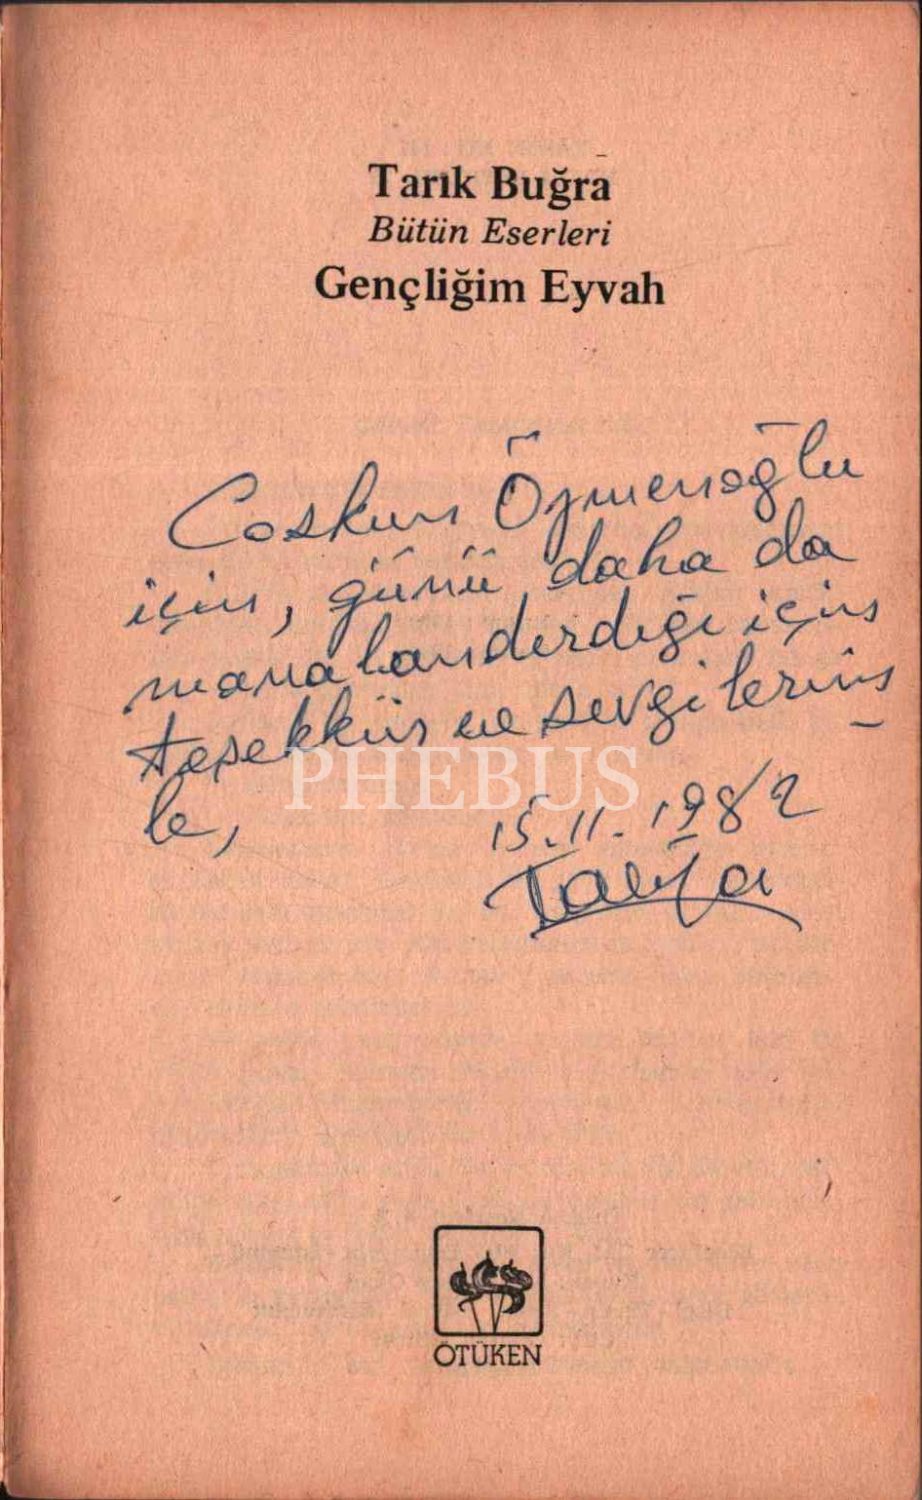 Tarık Buğra
Bütün Eserleri
Gençliğim Eyvah
Coşkun Özmenoğlu
için, günü daha da
manalandırdığı için
teşekkür ve sevgilerim-
le,
PHEBUS
15.11.1982
ÖTÜKEN